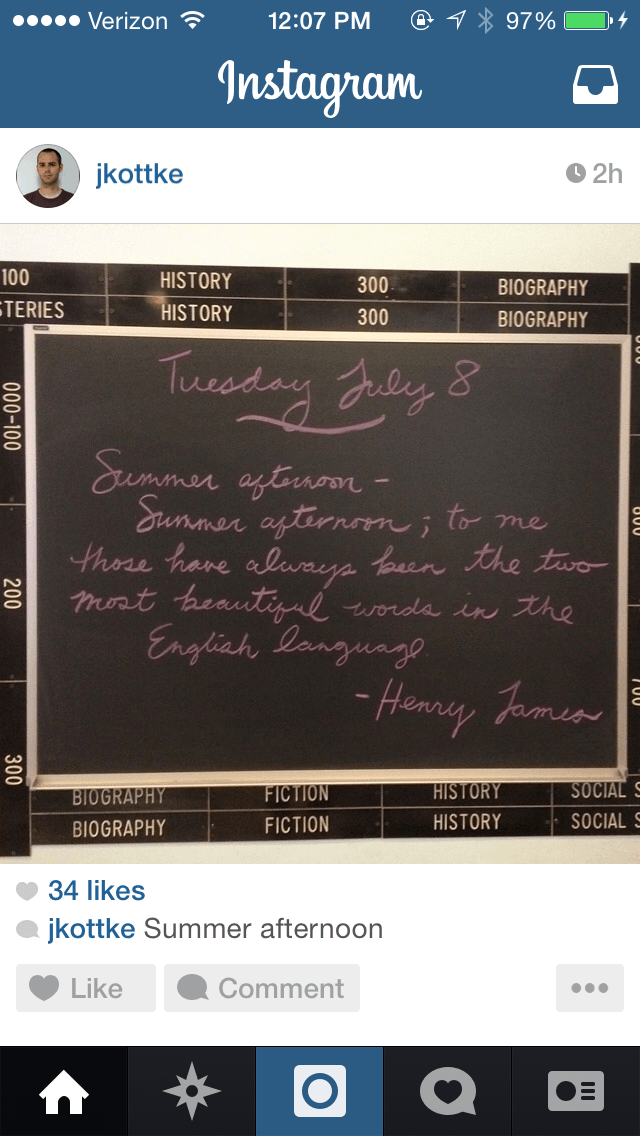 Verizon 12:07 PM 97%
Instagram
jkottke 2h
100 HISTORY 300 BIOGRAPHY
STERIES HISTORY 300 BIOGRAPHY
000-100
200
300
Tuesday July 8
Summer afternoon -
Summer afternoon; to me
those have always been the two
most beautiful words in the
English language.
- Henry James
700
BIOGRAPHY FICTION HISTORY SOCIAL S
BIOGRAPHY FICTION HISTORY SOCIAL S
34 likes
jkottke Summer afternoon
Like Comment